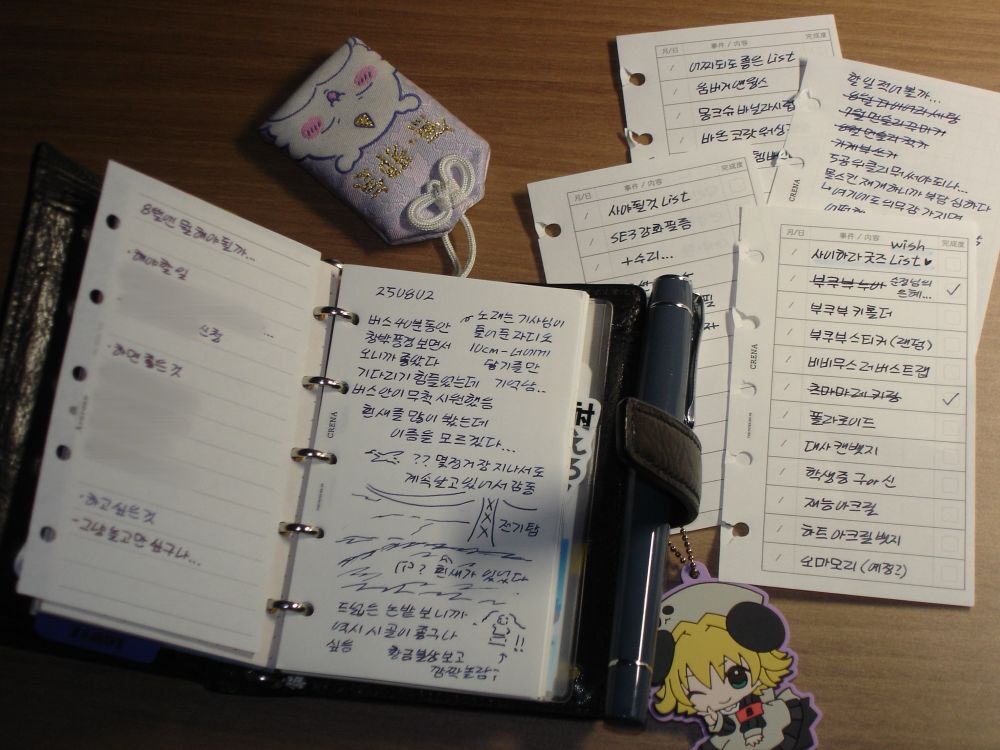 8월엔 뭘 해야될까...
· 해야할 일
신청 ...
· 하면 좋은 것
· 하고 싶은 것
- 그냥 놀고만 싶구나...
250802
버스 40분동안
창밖풍경 보면서
오니까 좋았다
노래는 기사님이
틀어둔 라디오
10cm-너에게
닿기를만
기억남..
기다리기 힘들었는데
버스 안이 무척 시원했음
흰새를 많이 봤는데
이름을 모르겠다...
?? 몇정거장 지나서도
계속 날고 있어서 감동
전기탑
흰새가 있었다
드넓은 논밭 보니까
역시 시골이 좋구나
싶음
황금불상 보고
깜짝놀람;
!!
CRENA
月/日 事件 / 内容 完成度
어찌되도 좋은 List
움버거앤윙스
몽크슈 바닐라시럽
月/日 事件 / 内容 完成度
사야될것 List
SE3 강화필름
+수리...
할일 적어볼까...
가계부쓰기
5공 위클리 뭐 써야되나...
몰스킨 재개하니까 부담 심하다
CRENA
月/日 事件 / 内容 完成度
사이하라 굿즈 wish List♥
부쿠부 누이 순정님의 은혜... ✓
부쿠부 키홀더
부쿠부 스티커 (랜덤)
비비무스 러버스트랩
츠마마레 키링 ✓
폴라로이드
대사 캔뱃지
학생증 구or신
재능아크릴
하트 아크릴 뱃지
오마모리 (예정?)
CRENA